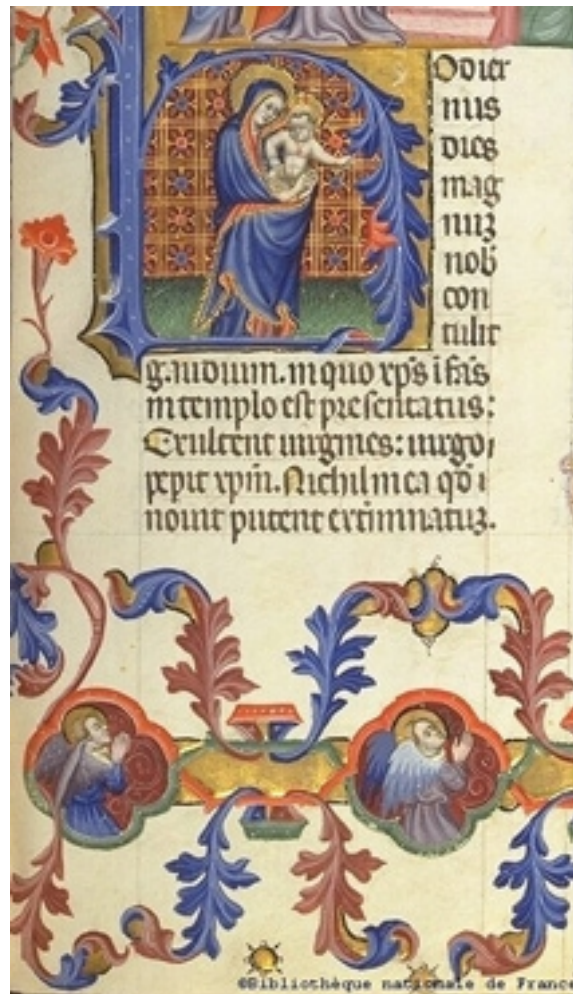 Hodier
nus
dies
mag
nuz
nob
con
tulit
gaudium. in quo xps i fas
in templo est presentatus:
Exultent uirgines: uirgo
pepit xpm. Nichil in ea qd i
nouit putent extimnatuz.
©Bibliothèque nationale de France